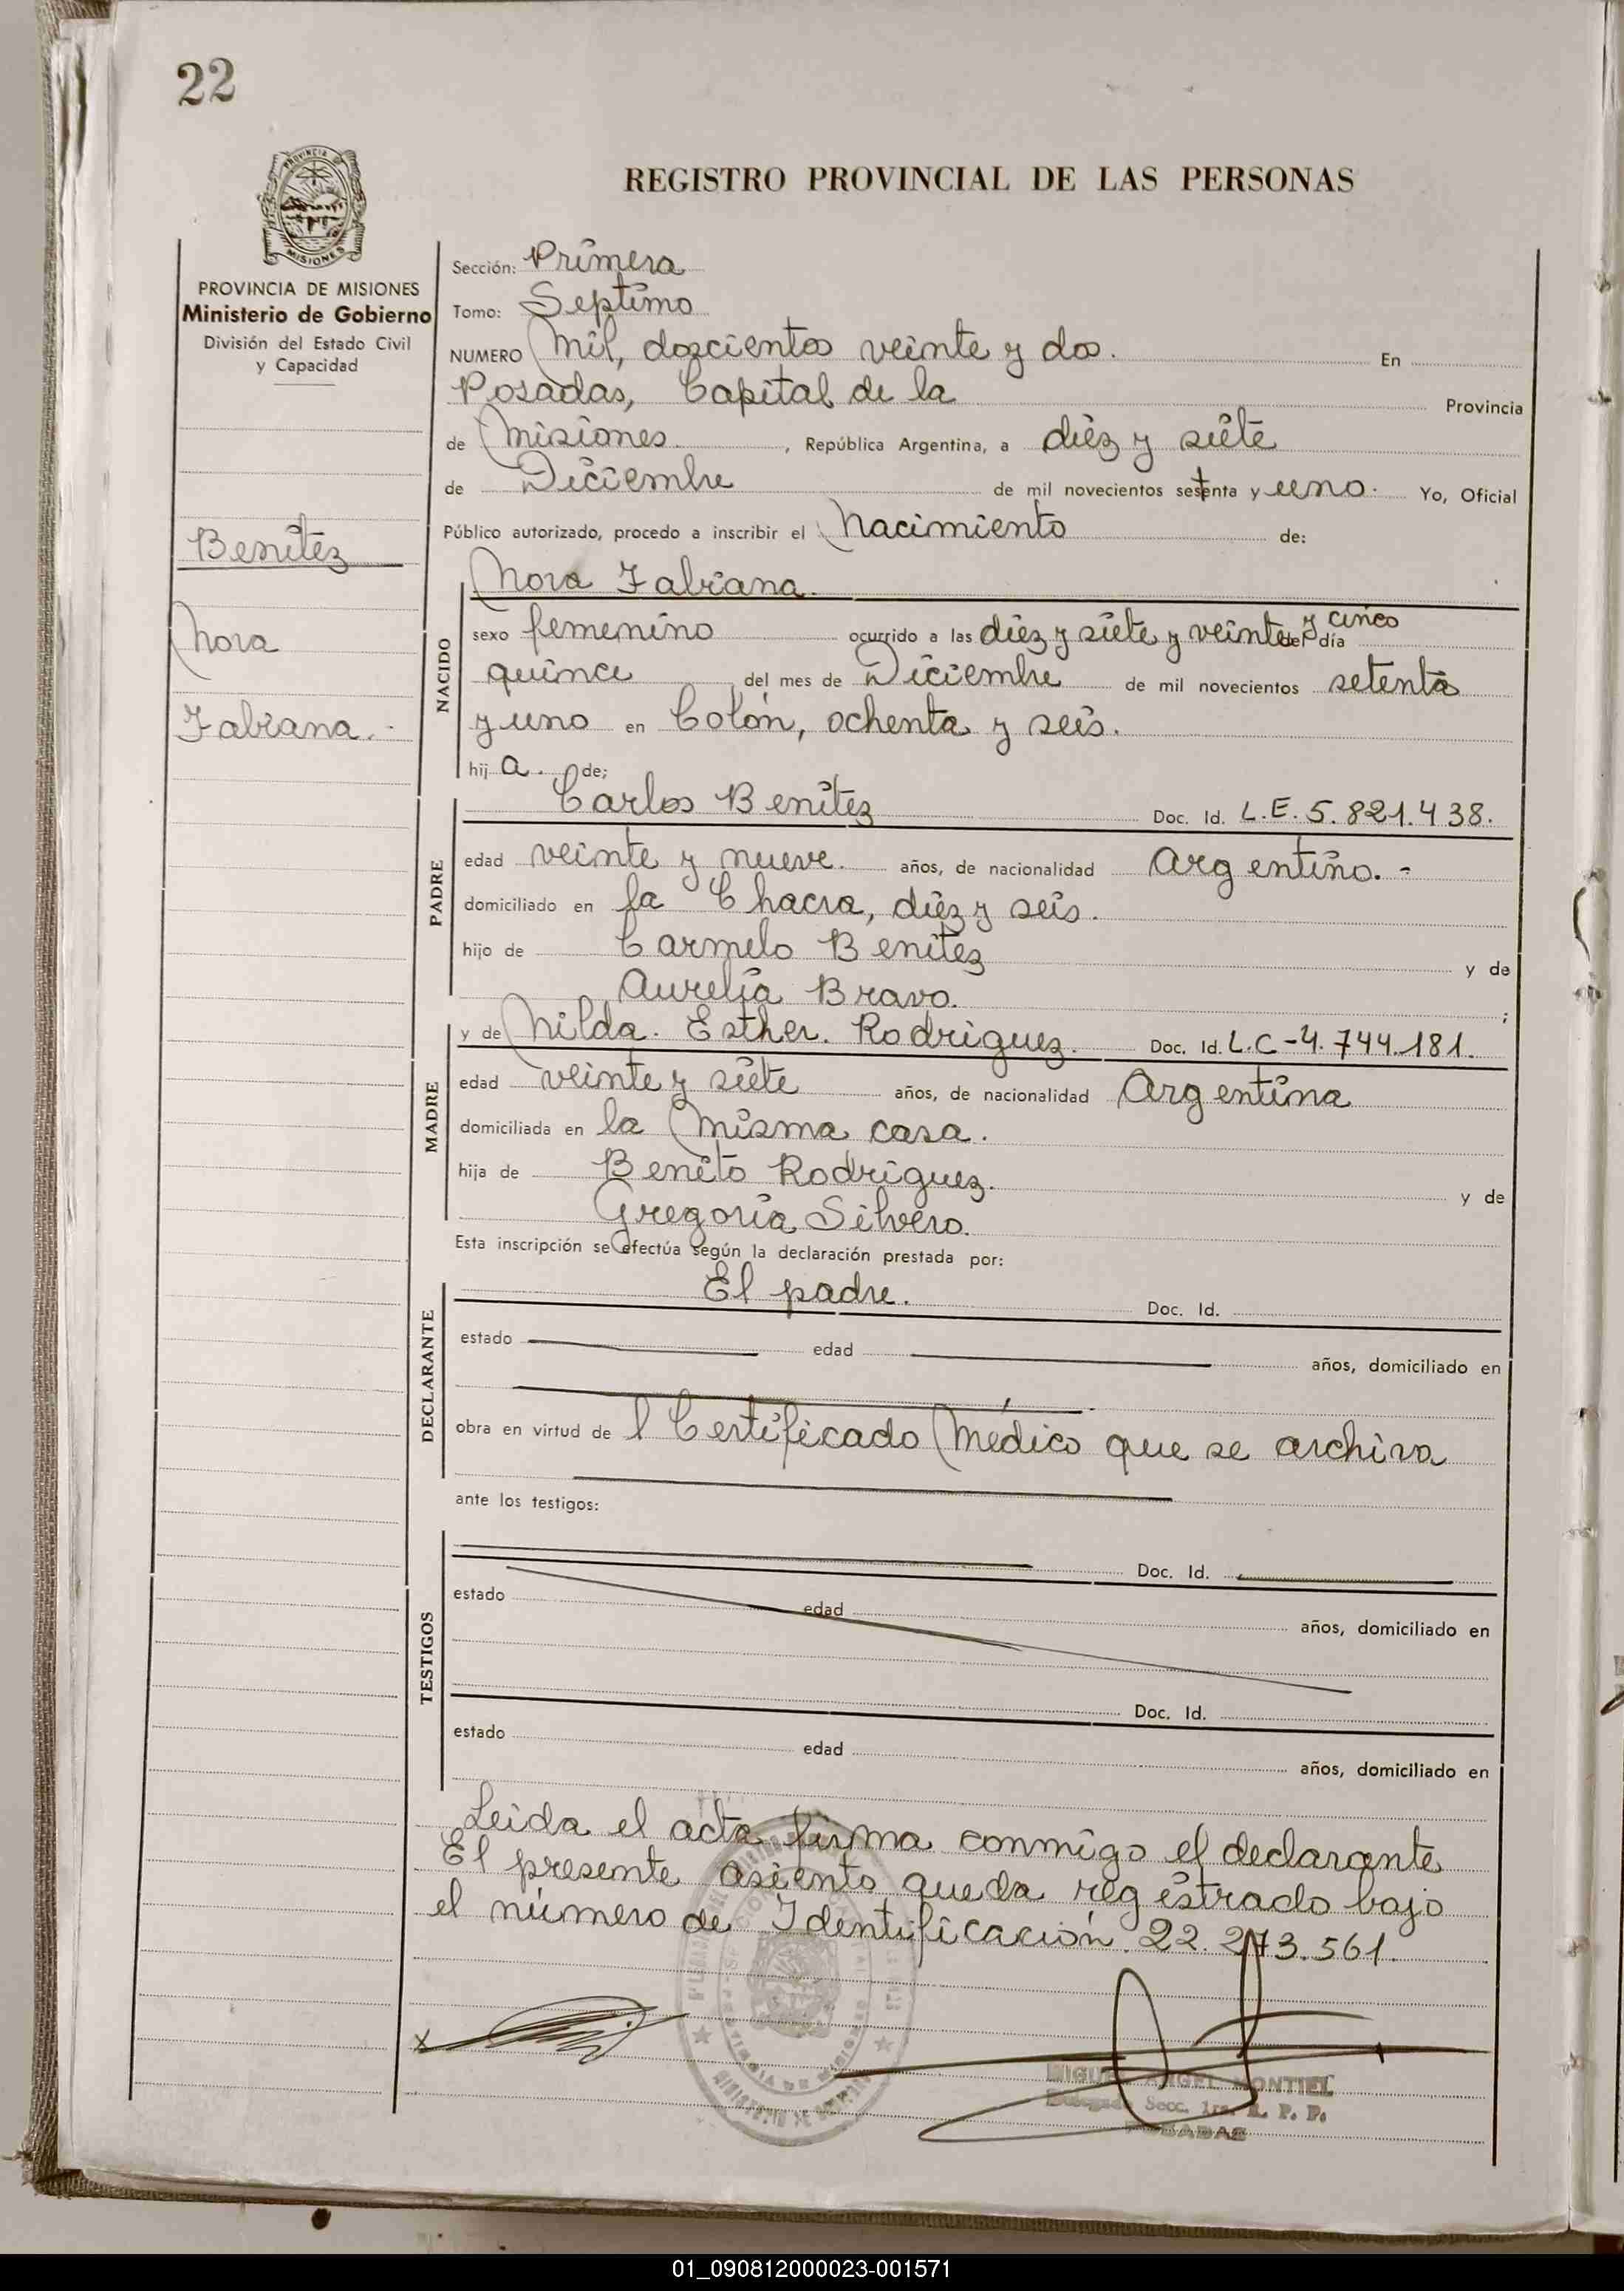 22
REGISTRO PROVINCIAL DE LAS PERSONAS
PROVINCIA DE MISIONES
Ministerio de Gobierno
División del Estado Civil
y Capacidad
Benítez
Nora
Fabiana.-
Sección: Primera
Tomo: Septimo
NUMERO Mil, doscientos veinte y dos. En
Posadas, Capital de la Provincia
de Misiones, República Argentina, a diéz y siéte
de Diciembre de mil novecientos setenta y uno. Yo, Oficial
Público autorizado, procedo a inscribir el Nacimiento de:
NACIDO
Nora Fabiana.
sexo femenino ocurrido a las diéz y siéte y veinte y cinco del día
quince del mes de Diciembre de mil novecientos setenta
y uno en Colón, ochenta y seis.
hij a. de;
PADRE
Carlos Benítez Doc. Id. L.E. 5.821.438.
edad veinte y nueve. años, de nacionalidad Argentino.-
domiciliado en la Chacra, diéz y seis.
hijo de Carmelo Benítez y de
Aurelia Bravo. ;
MADRE
y de Nilda. Esther. Rodriguez. Doc. Id. L.C-4.744.181.
edad veinte y siéte años, de nacionalidad Argentina
domiciliada en la Misma casa.
hija de Benito Rodriguez. y de
Gregoria Silvero.
Esta inscripción se efectúa según la declaración prestada por:
DECLARANTE
El padre. Doc. Id.
estado edad años, domiciliado en
obra en virtud de l Certificado Médico que se archiva
ante los testigos:
TESTIGOS
Doc. Id.
estado edad años, domiciliado en
Doc. Id.
estado edad años, domiciliado en
Leida el acta firma conmigo el declarante
El presente asiento queda registrado bajo
el número de Identificación. 22.273.561.
MIGUEL ANGEL MONTIEL
Delegado Secc. 1ra. R. P. P.
POSADAS
01_090812000023-001571